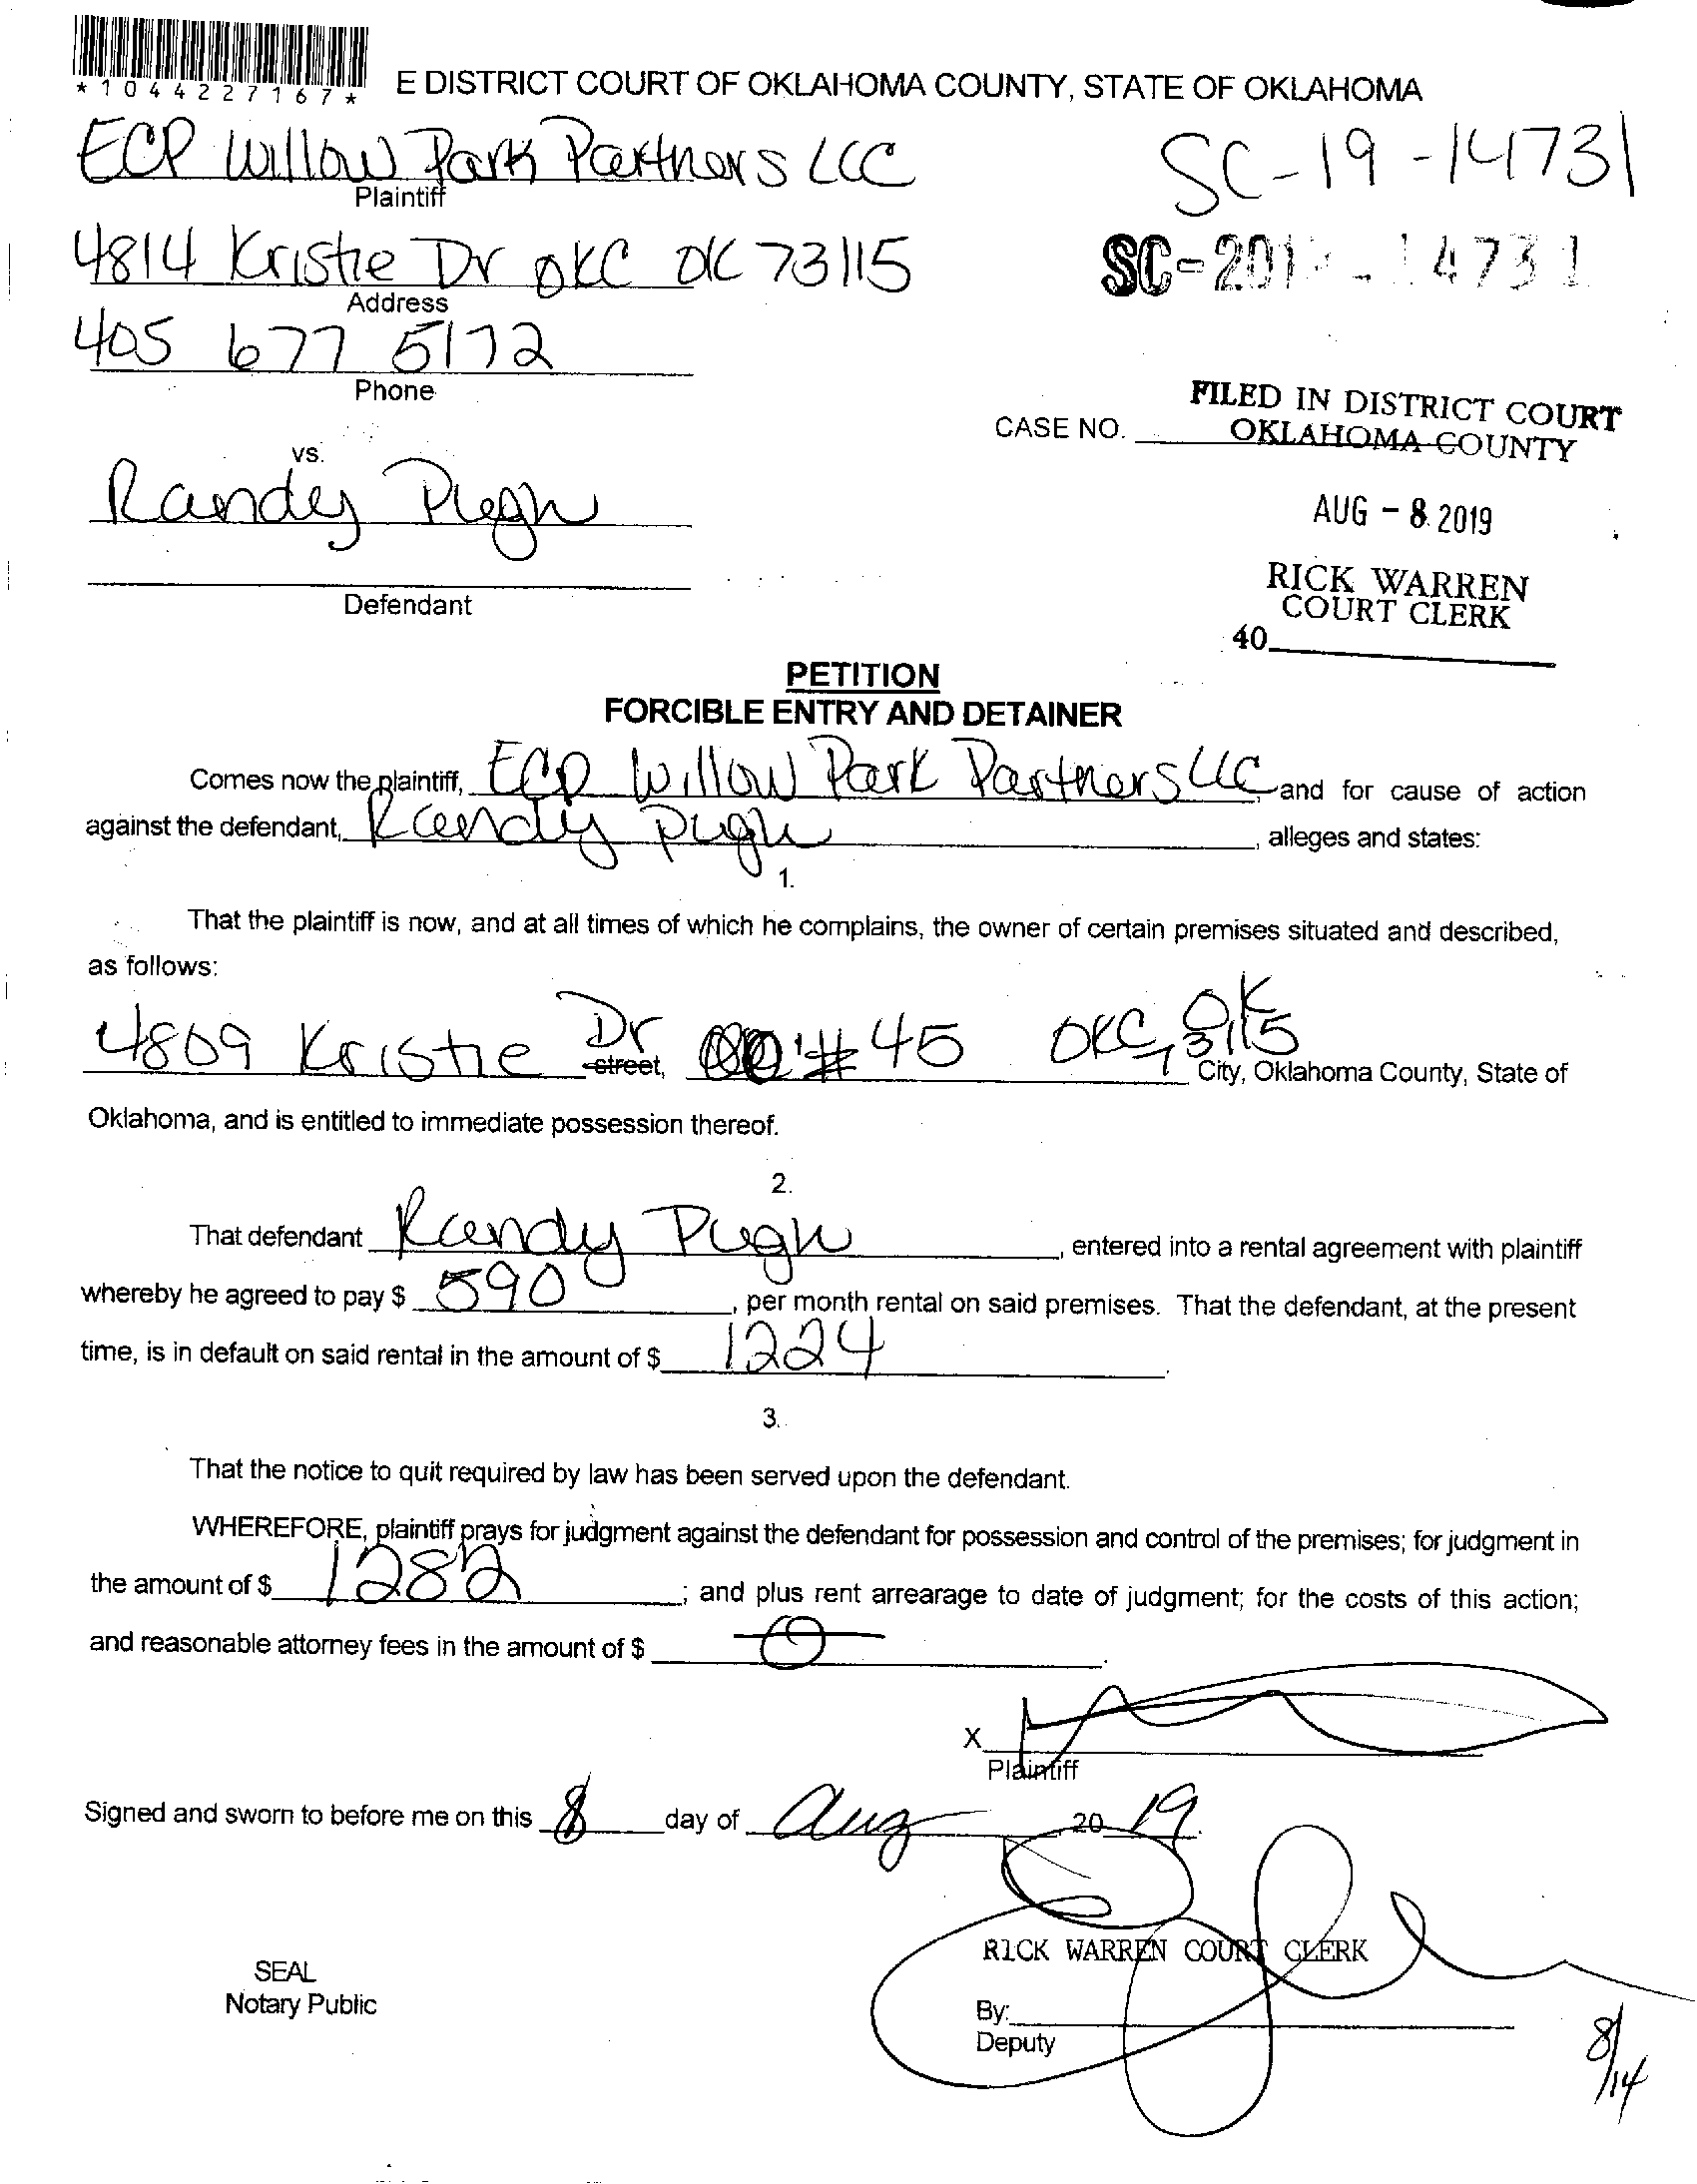 *1044227167*
E DISTRICT COURT OF OKLAHOMA COUNTY, STATE OF OKLAHOMA
ECP Willow Park Partners LLC
Plaintiff
SC-19-14731
4814 Kristie Dr OKC OK 73115
Address
SC-201 - 14731
405 677 5172
Phone
FILED IN DISTRICT COURT
CASE NO. OKLAHOMA COUNTY
vs.
Randy Pugh
AUG - 8 2019
Defendant
RICK WARREN
COURT CLERK
40
PETITION
FORCIBLE ENTRY AND DETAINER
Comes now the plaintiff, ECP Willow Park Partners LLC, and for cause of action
against the defendant, Randy Pugh, alleges and states:
1.
That the plaintiff is now, and at all times of which he complains, the owner of certain premises situated and described,
as follows:
4809 Kristie Dr street, #45 OKC, OK 73115 City, Oklahoma County, State of
Oklahoma, and is entitled to immediate possession thereof.
2.
That defendant Randy Pugh, entered into a rental agreement with plaintiff
whereby he agreed to pay $ 590, per month rental on said premises. That the defendant, at the present
time, is in default on said rental in the amount of $ 1224.
3.
That the notice to quit required by law has been served upon the defendant.
WHEREFORE, plaintiff prays for judgment against the defendant for possession and control of the premises; for judgment in
the amount of $ 1282; and plus rent arrearage to date of judgment; for the costs of this action;
and reasonable attorney fees in the amount of $ 0.
X
Plaintiff
Signed and sworn to before me on this 8 day of Aug, 20 19.
RICK WARREN COURT CLERK
SEAL
Notary Public
By:
Deputy
8/14